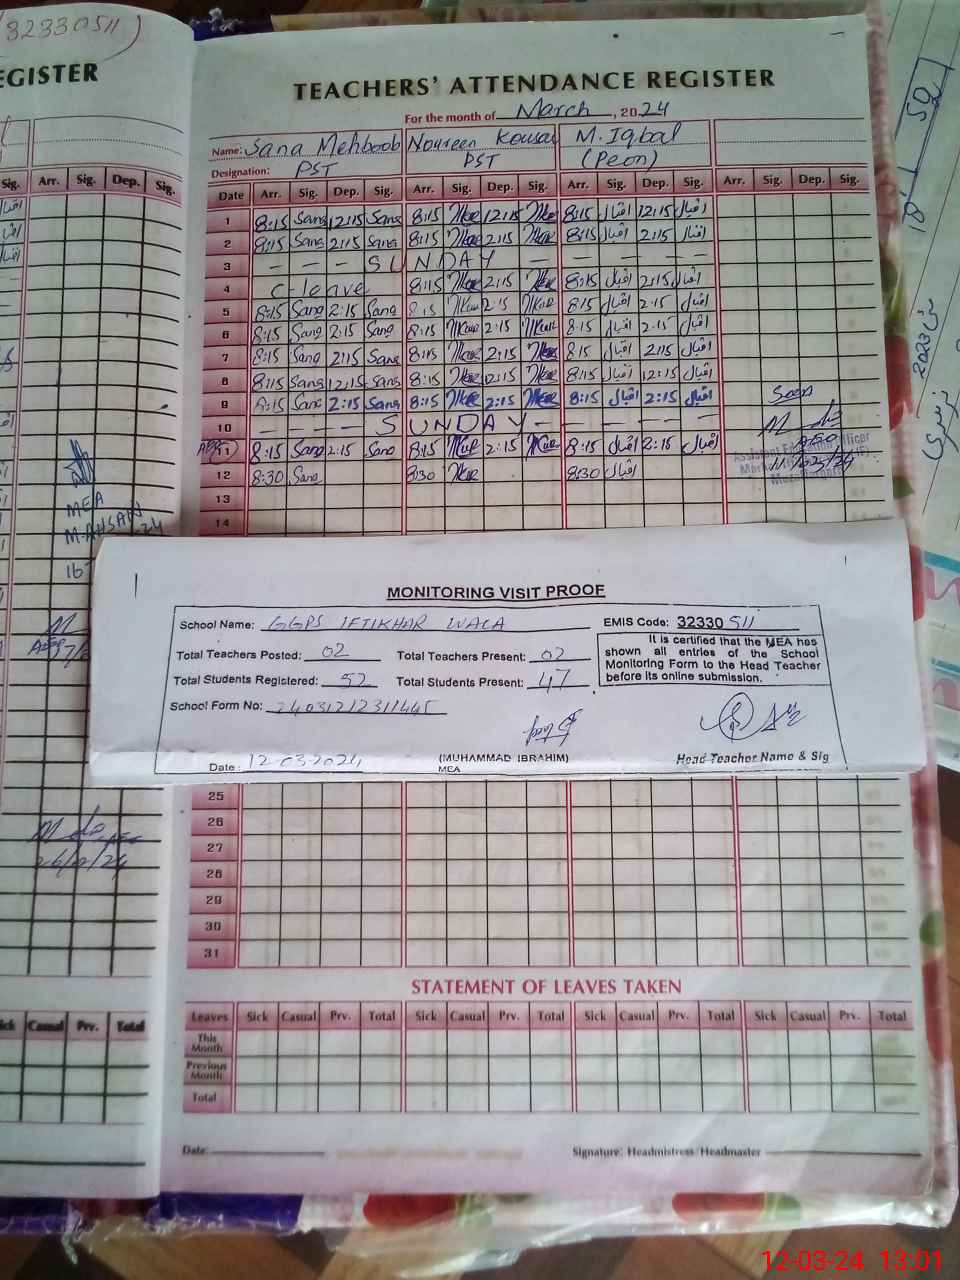 (32330511)
EGISTER
Sig. Arr. Sig. Dep. Sig.
MEA
M.AHSAN
TEACHERS' ATTENDANCE REGISTER
For the month of March, 2024
Name: Sana Mehboob Noureen Kousar M. Iqbal
Designation: PST PST (Peon)
Date Arr. Sig. Dep. Sig. Arr. Sig. Dep. Sig. Arr. Sig. Dep. Sig. Arr. Sig. Dep. Sig.
1 8:15 Sana 12:15 Sana 8:15 12:15 8:15 اقبال 12:15 اقبال
2 8:15 Sana 2:15 Sana 8:15 2:15 8:15 اقبال 2:15 اقبال
3 - - - S U N D A Y - - - - -
4 C-leave 8:15 2:15 8:15 اقبال 2:15 اقبال
5 8:15 Sana 2:15 Sana 8:15 2:15 8:15 اقبال 2:15 اقبال
6 8:15 Sana 2:15 Sana 8:15 2:15 8:15 اقبال 2:15 اقبال
7 8:15 Sana 2:15 Sana 8:15 2:15 8:15 اقبال 2:15 اقبال
8 8:15 Sana 12:15 Sana 8:15 12:15 8:15 اقبال 12:15 اقبال
9 8:15 Sana 2:15 Sana 8:15 2:15 8:15 اقبال 2:15 اقبال Seen
10 - - - S U N D A Y - - - - -
11 8:15 Sana 2:15 Sana 8:15 2:15 8:15 اقبال 2:15 اقبال
Assistant Education Officer
12 8:30 Sana 8:30 8:30 اقبال
13
14
MONITORING VISIT PROOF
School Name: GGPS IFTIKHAR WALA EMIS Code: 32330511
Total Teachers Posted: 02 Total Teachers Present: 02
Total Students Registered: 52 Total Students Present: 47
It is certified that the MEA has
shown all entries of the School
Monitoring Form to the Head Teacher
before its online submission.
School Form No: 24031212311445
Date: 12-03-2024 (MUHAMMAD IBRAHIM) Head Teacher Name & Sig
MEA
25
26
27
28
29
30
31
STATEMENT OF LEAVES TAKEN
Sick Casual Prv. Total
Leaves Sick Casual Prv. Total Sick Casual Prv. Total Sick Casual Prv. Total Sick Casual Prv. Total
This Month
Previous Month
Total
Date: Signature: Headmistress/Headmaster
12-03-24 13:01